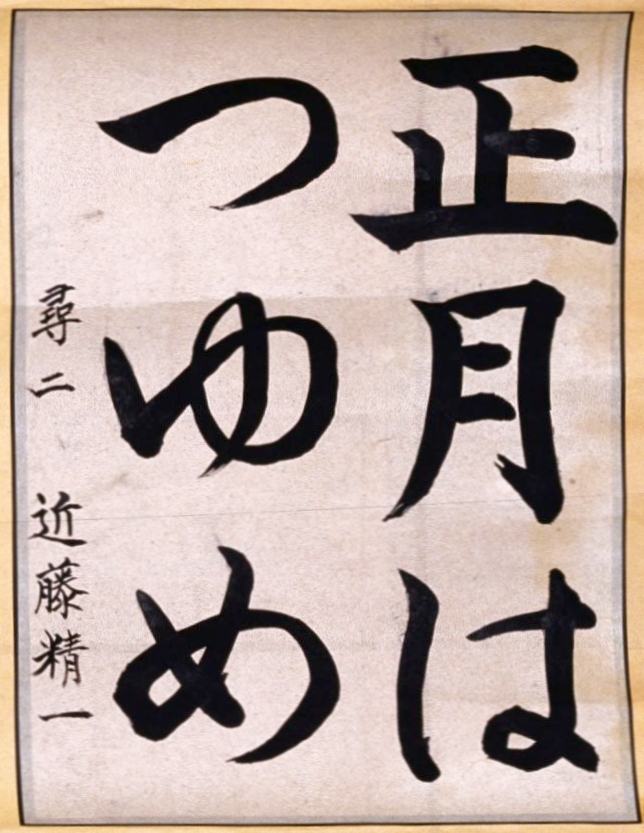 正月は
つゆめ
尋二 近藤精一